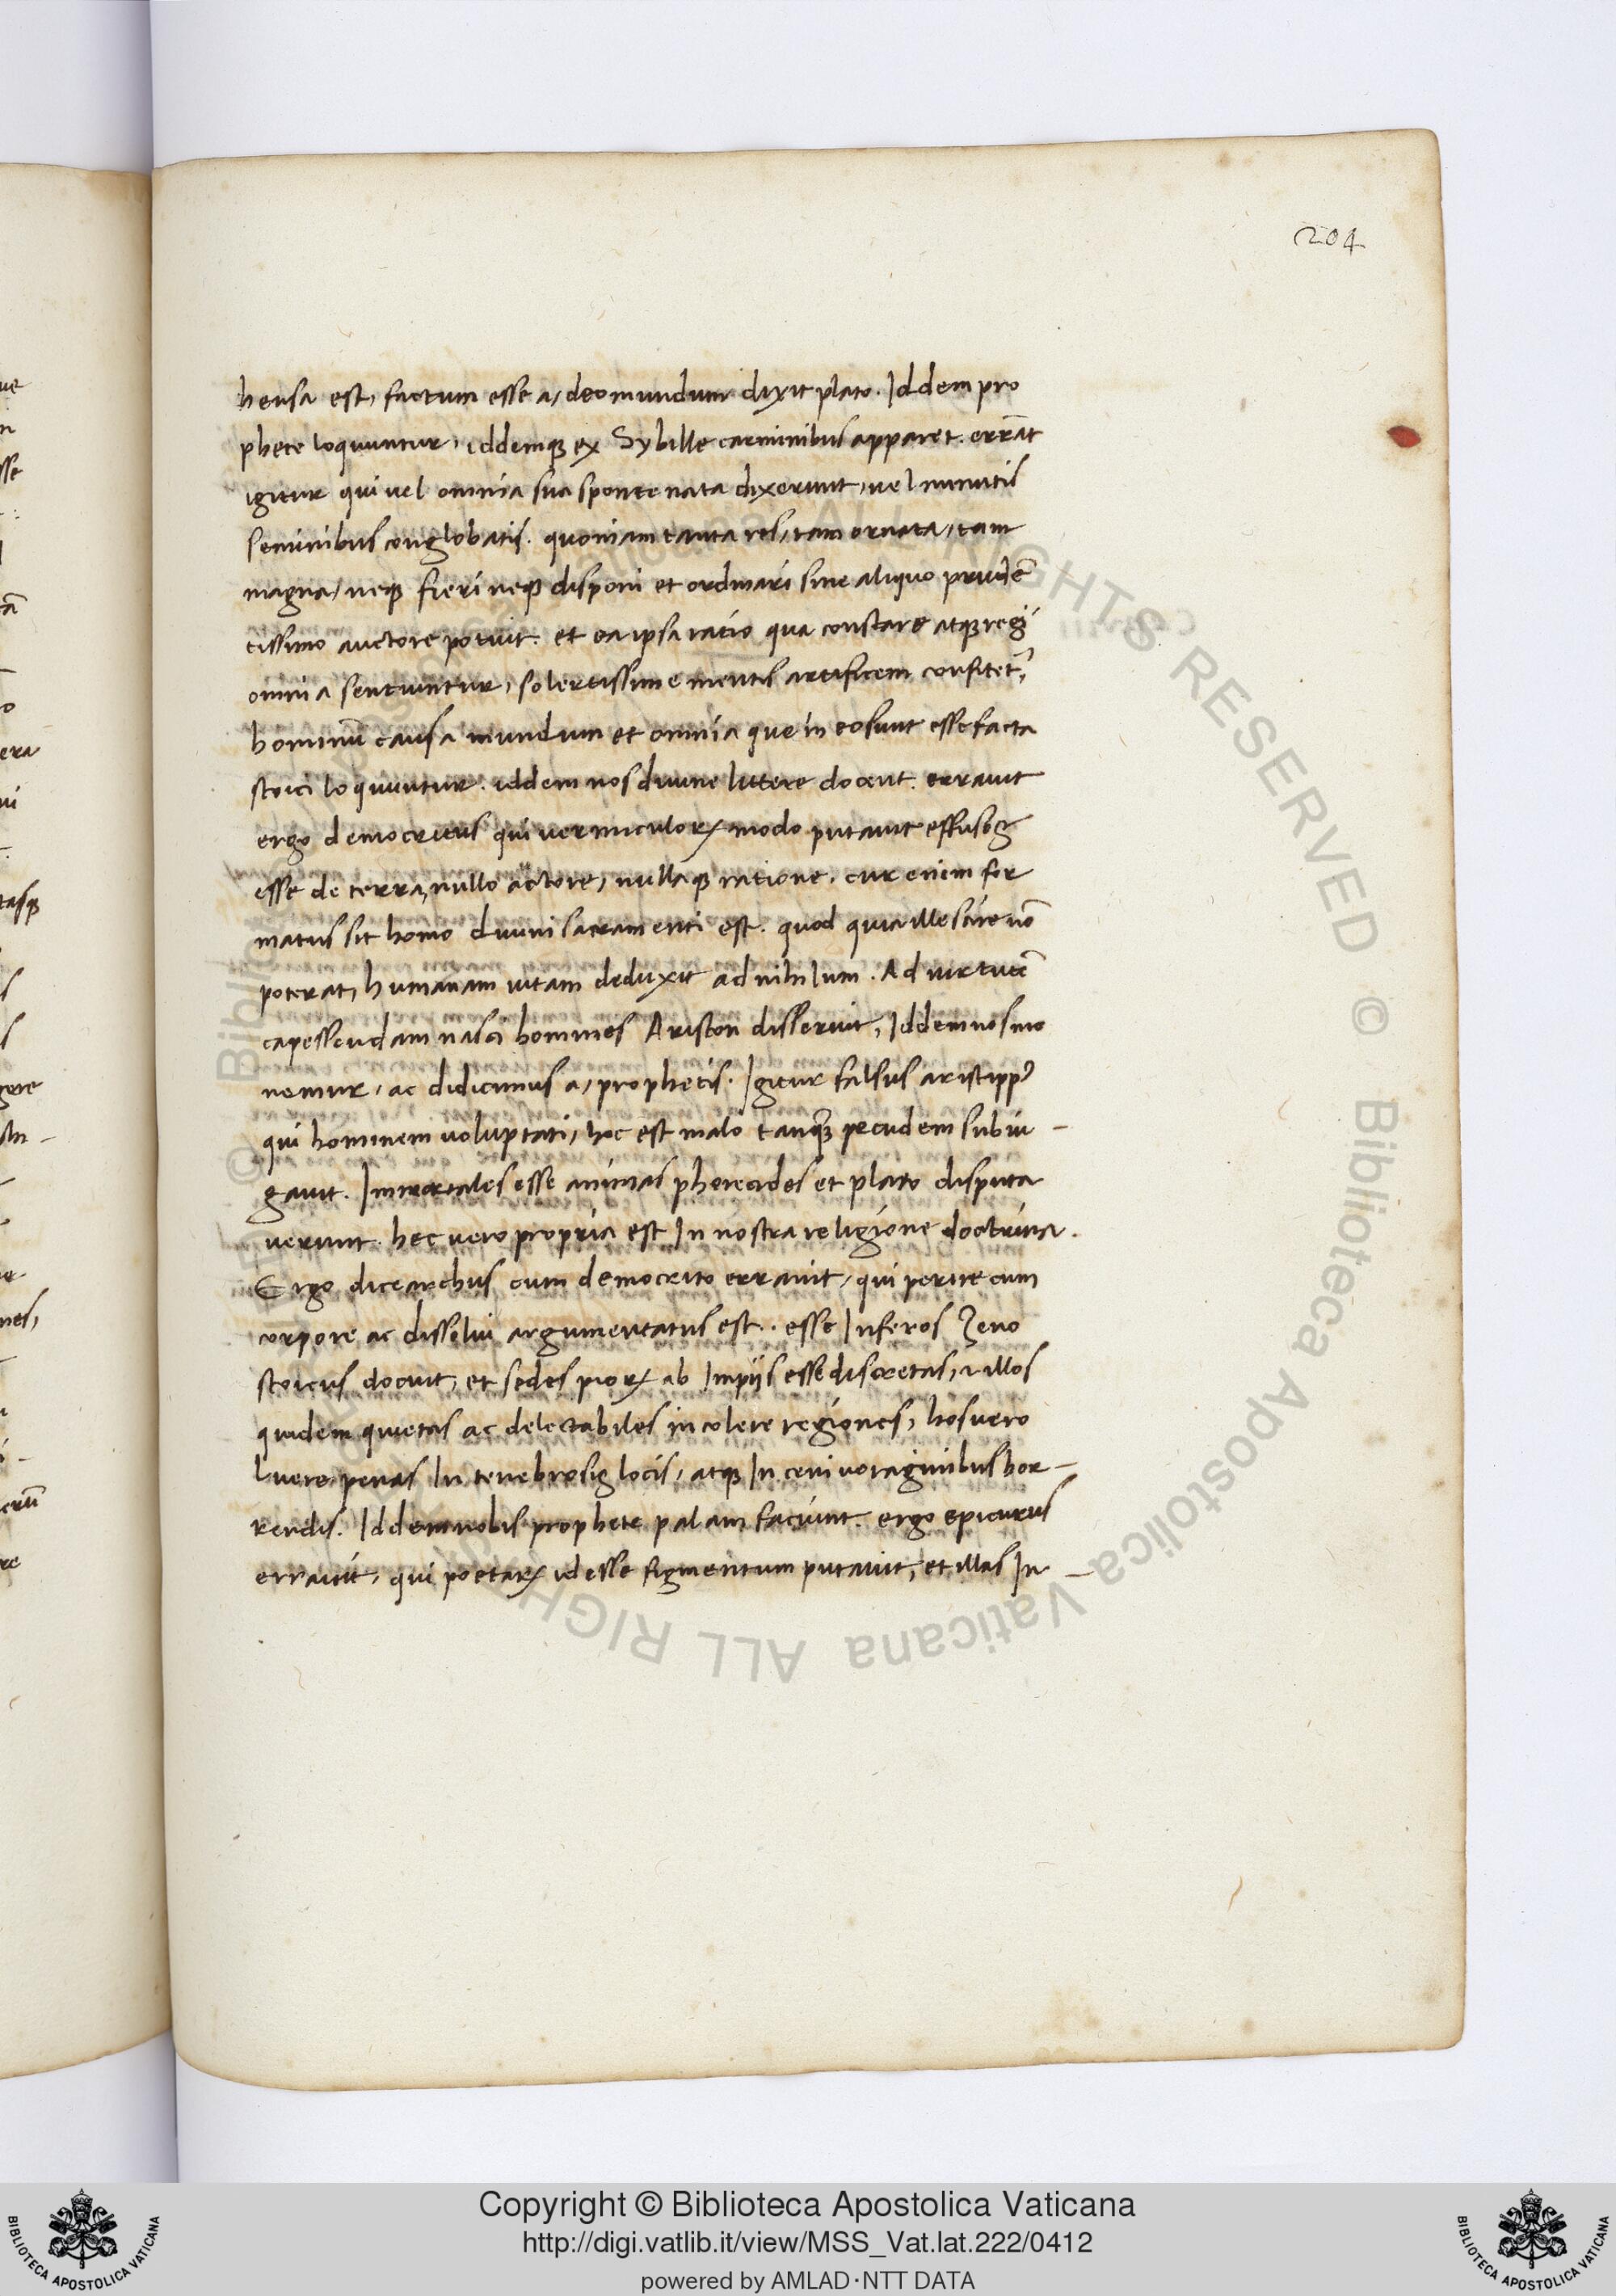 204
hensa est, factum esse a, deo mundum dixit plato. Iddem pro
phete loquuntur, iddemqꝫ ex Sybille carminibus apparet. errāt
igitur qui vel omnia sua sponte nata dixerunt, vel minutis
seminibus conglobatis. quoniam tanta res, tam ornata, tam
magna, neqꝫ fieri neqꝫ disponi et ordinari sine aliquo prudē
tissimo auctore potuit. et ea ipsa ratio qua constare atqꝫ regi
omnia sentiuntur, solertissime mentis artificem confitetᷣ,
hominū causa mundum et omnia que in eo sunt esse facta
stoici loquuntur. iddem nos diuine littere docent. errauit
ergo democritus qui vermiculoꝝ modo putauit effusos
esse de terra, nullo actore, nullaqꝫ ratione. cur enim for
matus sit homo diuini sacramenti est. quod quia ille scire nō
poterat, humanam vitam deduxit ad nihilum. Ad virtutē
capessendam nasci homines Ariston disseruit, Iddem nos mo
nemur, ac didicimus a, prophetis. Igitur falsus aristippꝰ
qui hominem voluptati, hoc est malo tanqꝫ pecudem subiu -
gauit. Immortales esse animas pherecides et plato disputa
uerunt. hec vero propria est In nostra religione doctrina.
Ergo dicearchus cum democrito errauit, qui perire cum
corpore ac dissolui argumentatus est.. esse Inferos Zeno
stoicus docuit, et sedes pioꝝ ab Impijs esse discretas, ⁊ illos
quidem quietas ac delectabiles incolere regiones, hos vero
luere penas In tenebrosis locis, atqꝫ In ceni voraginibus hor -
rendis. Iddem nobis prophete palam faciunt. ergo epicurus
errauit, qui poetaꝝ id esse figmentum putauit, et illas In -
Copyright © Biblioteca Apostolica Vaticana
http://digi.vatlib.it/view/MSS_Vat.lat.222/0412
powered by AMLAD·NTT DATA
BIBLIOTECA APOSTOLICA VATICANA
BIBLIOTECA APOSTOLICA VATICANA